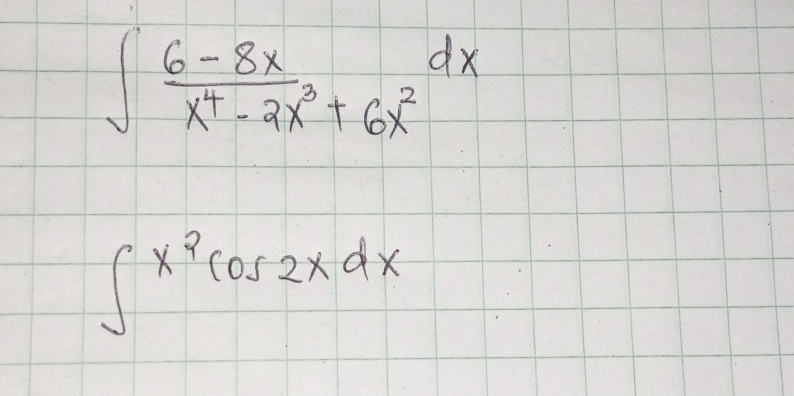 ∫ (6 - 8x)/(x⁴ - 2x³ + 6x²) dx
∫ x² cos 2x dx